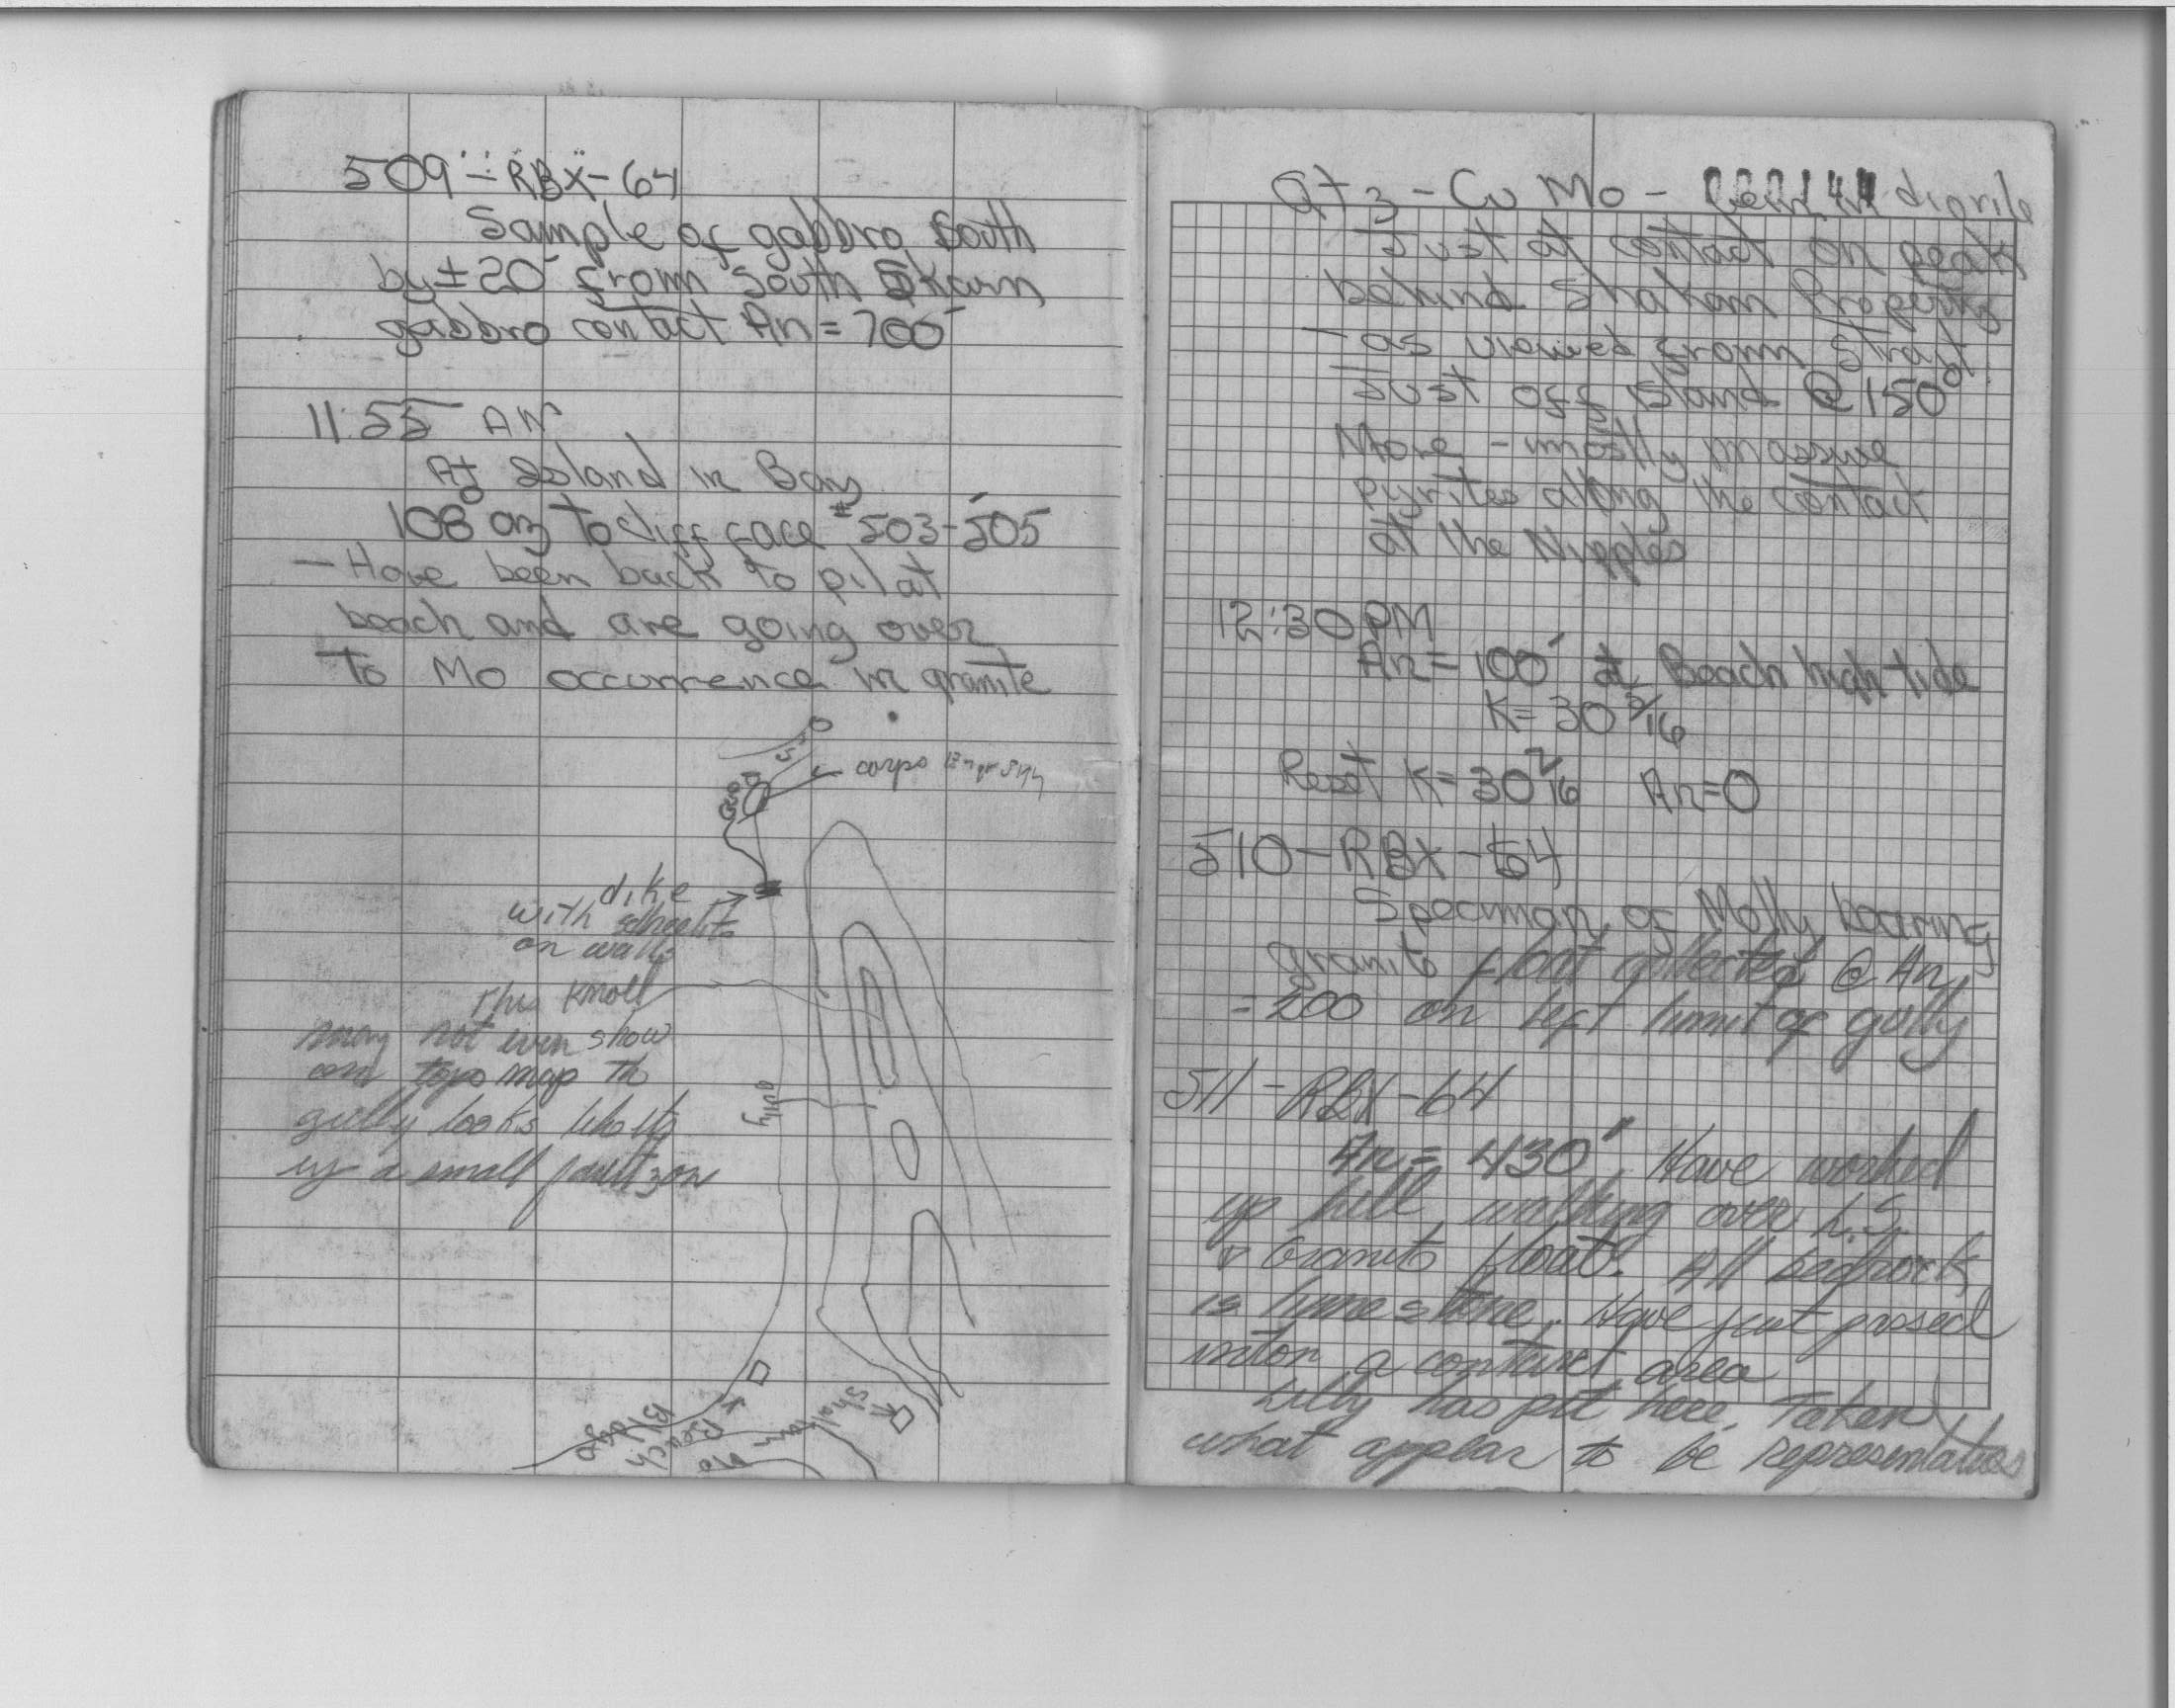 509-RBX-64
Sample of gabbro South
by ± 20' from South Skarn
gabbro contact An = 700'
11:55 AM
At Island in Bay
108° az to cliff face #503-505
- Have been back to pilat
beach and are going over
to Mo occurrence in granite
corps Engr
dike
with scheelite
on walls
This knoll
may not even show
on topo map Th
gully looks
a small fault zon
gully
Beach
Shakan
Qtz - Cu Mo - diorite
Just at contact on peak
behind Shakan Property
- as viewed from strait
Just off island @ 150°
More - mostly massive
pyrites along the contact
at the Nipples
12:30 PM
An = 100' at Beach high tide
K = 30 3/16
Reset K = 30 2/16 An=0
510-RBX-64
Speciman of Molly bearing
granite float collected @ An
= 200 on left limit of gully
511-RBX-64
An = 430' Have worked
up hill walking over L.S.
& Granite float. All bedrock
is limestone. Have just passed
a contact area
has pit here. Taken
what appear to be representative